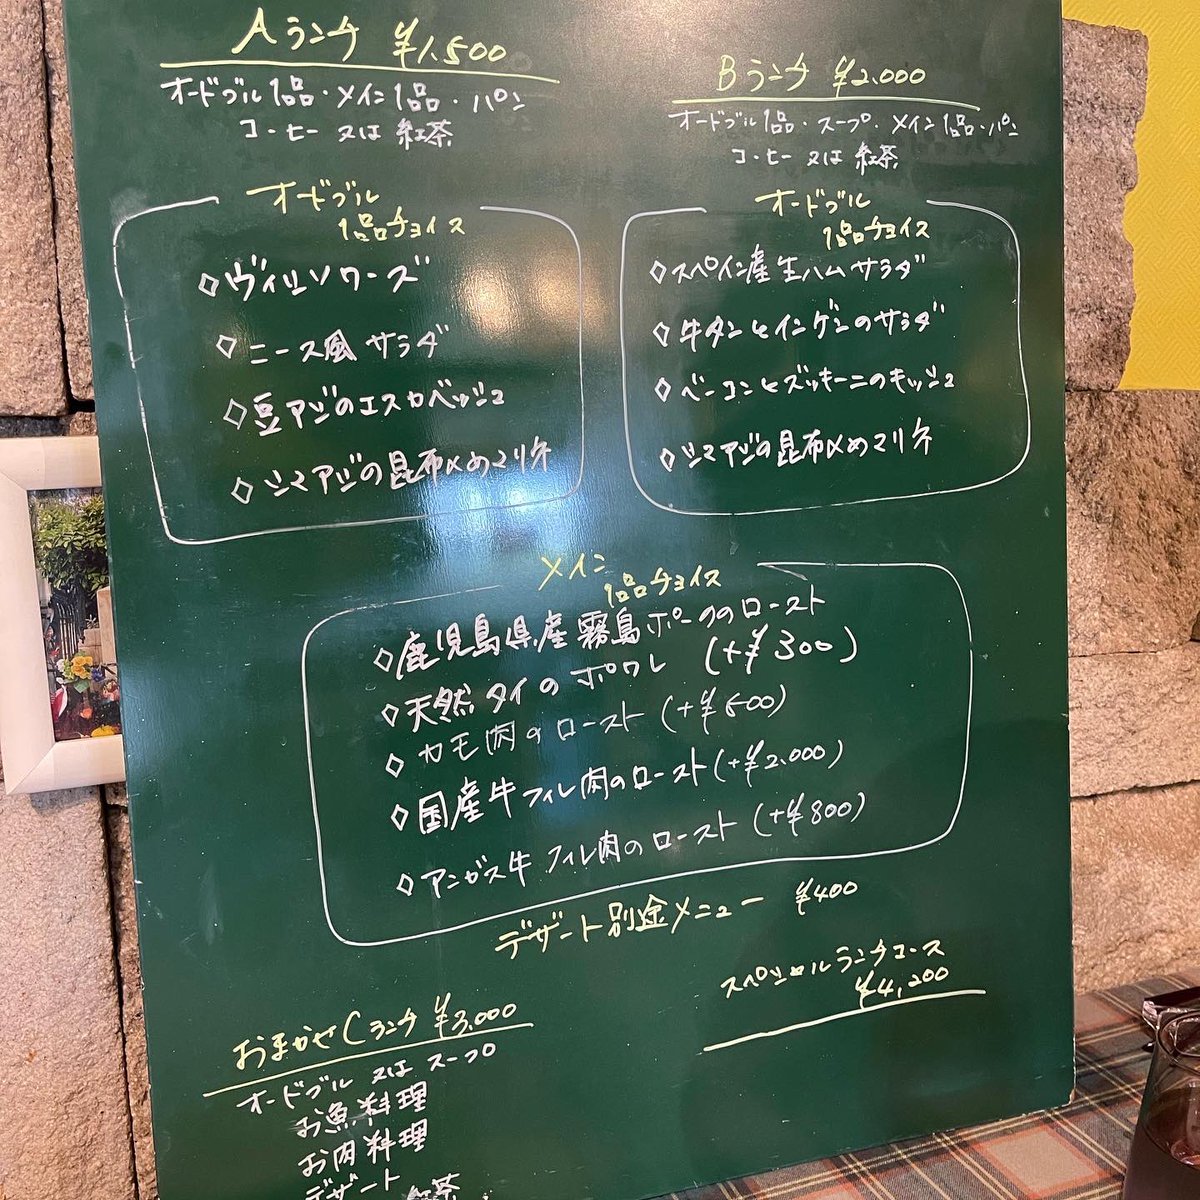 Aランチ ¥1,500
オードブル1品・メイン1品・パン
コーヒー 又は 紅茶
オードブル
1品チョイス
◇ヴィシソワーズ
◇ニース風サラダ
◇豆アジのエスカベッシュ
◇シマアジの昆布〆めマリネ
Bランチ ¥2,000
オードブル1品・スープ・メイン1品・パン
コーヒー 又は 紅茶
オードブル
1品チョイス
◇スペイン産生ハムサラダ
◇牛タンとインゲンのサラダ
◇ベーコンとズッキーニのキッシュ
◇シマアジの昆布〆めマリネ
メイン
1品チョイス
◇鹿児島県産霧島ポークのロースト
◇天然タイのポワレ (+¥300)
◇カモ肉のロースト (+¥500)
◇国産牛フィレ肉のロースト(+¥2,000)
◇アンガス牛フィレ肉のロースト (+¥800)
デザート別途メニュー ¥400
スペシャルランチコース
¥4,200
おまかせCランチ ¥3,000
オードブル 又は スープ
お魚料理
お肉料理
デザート
紅茶